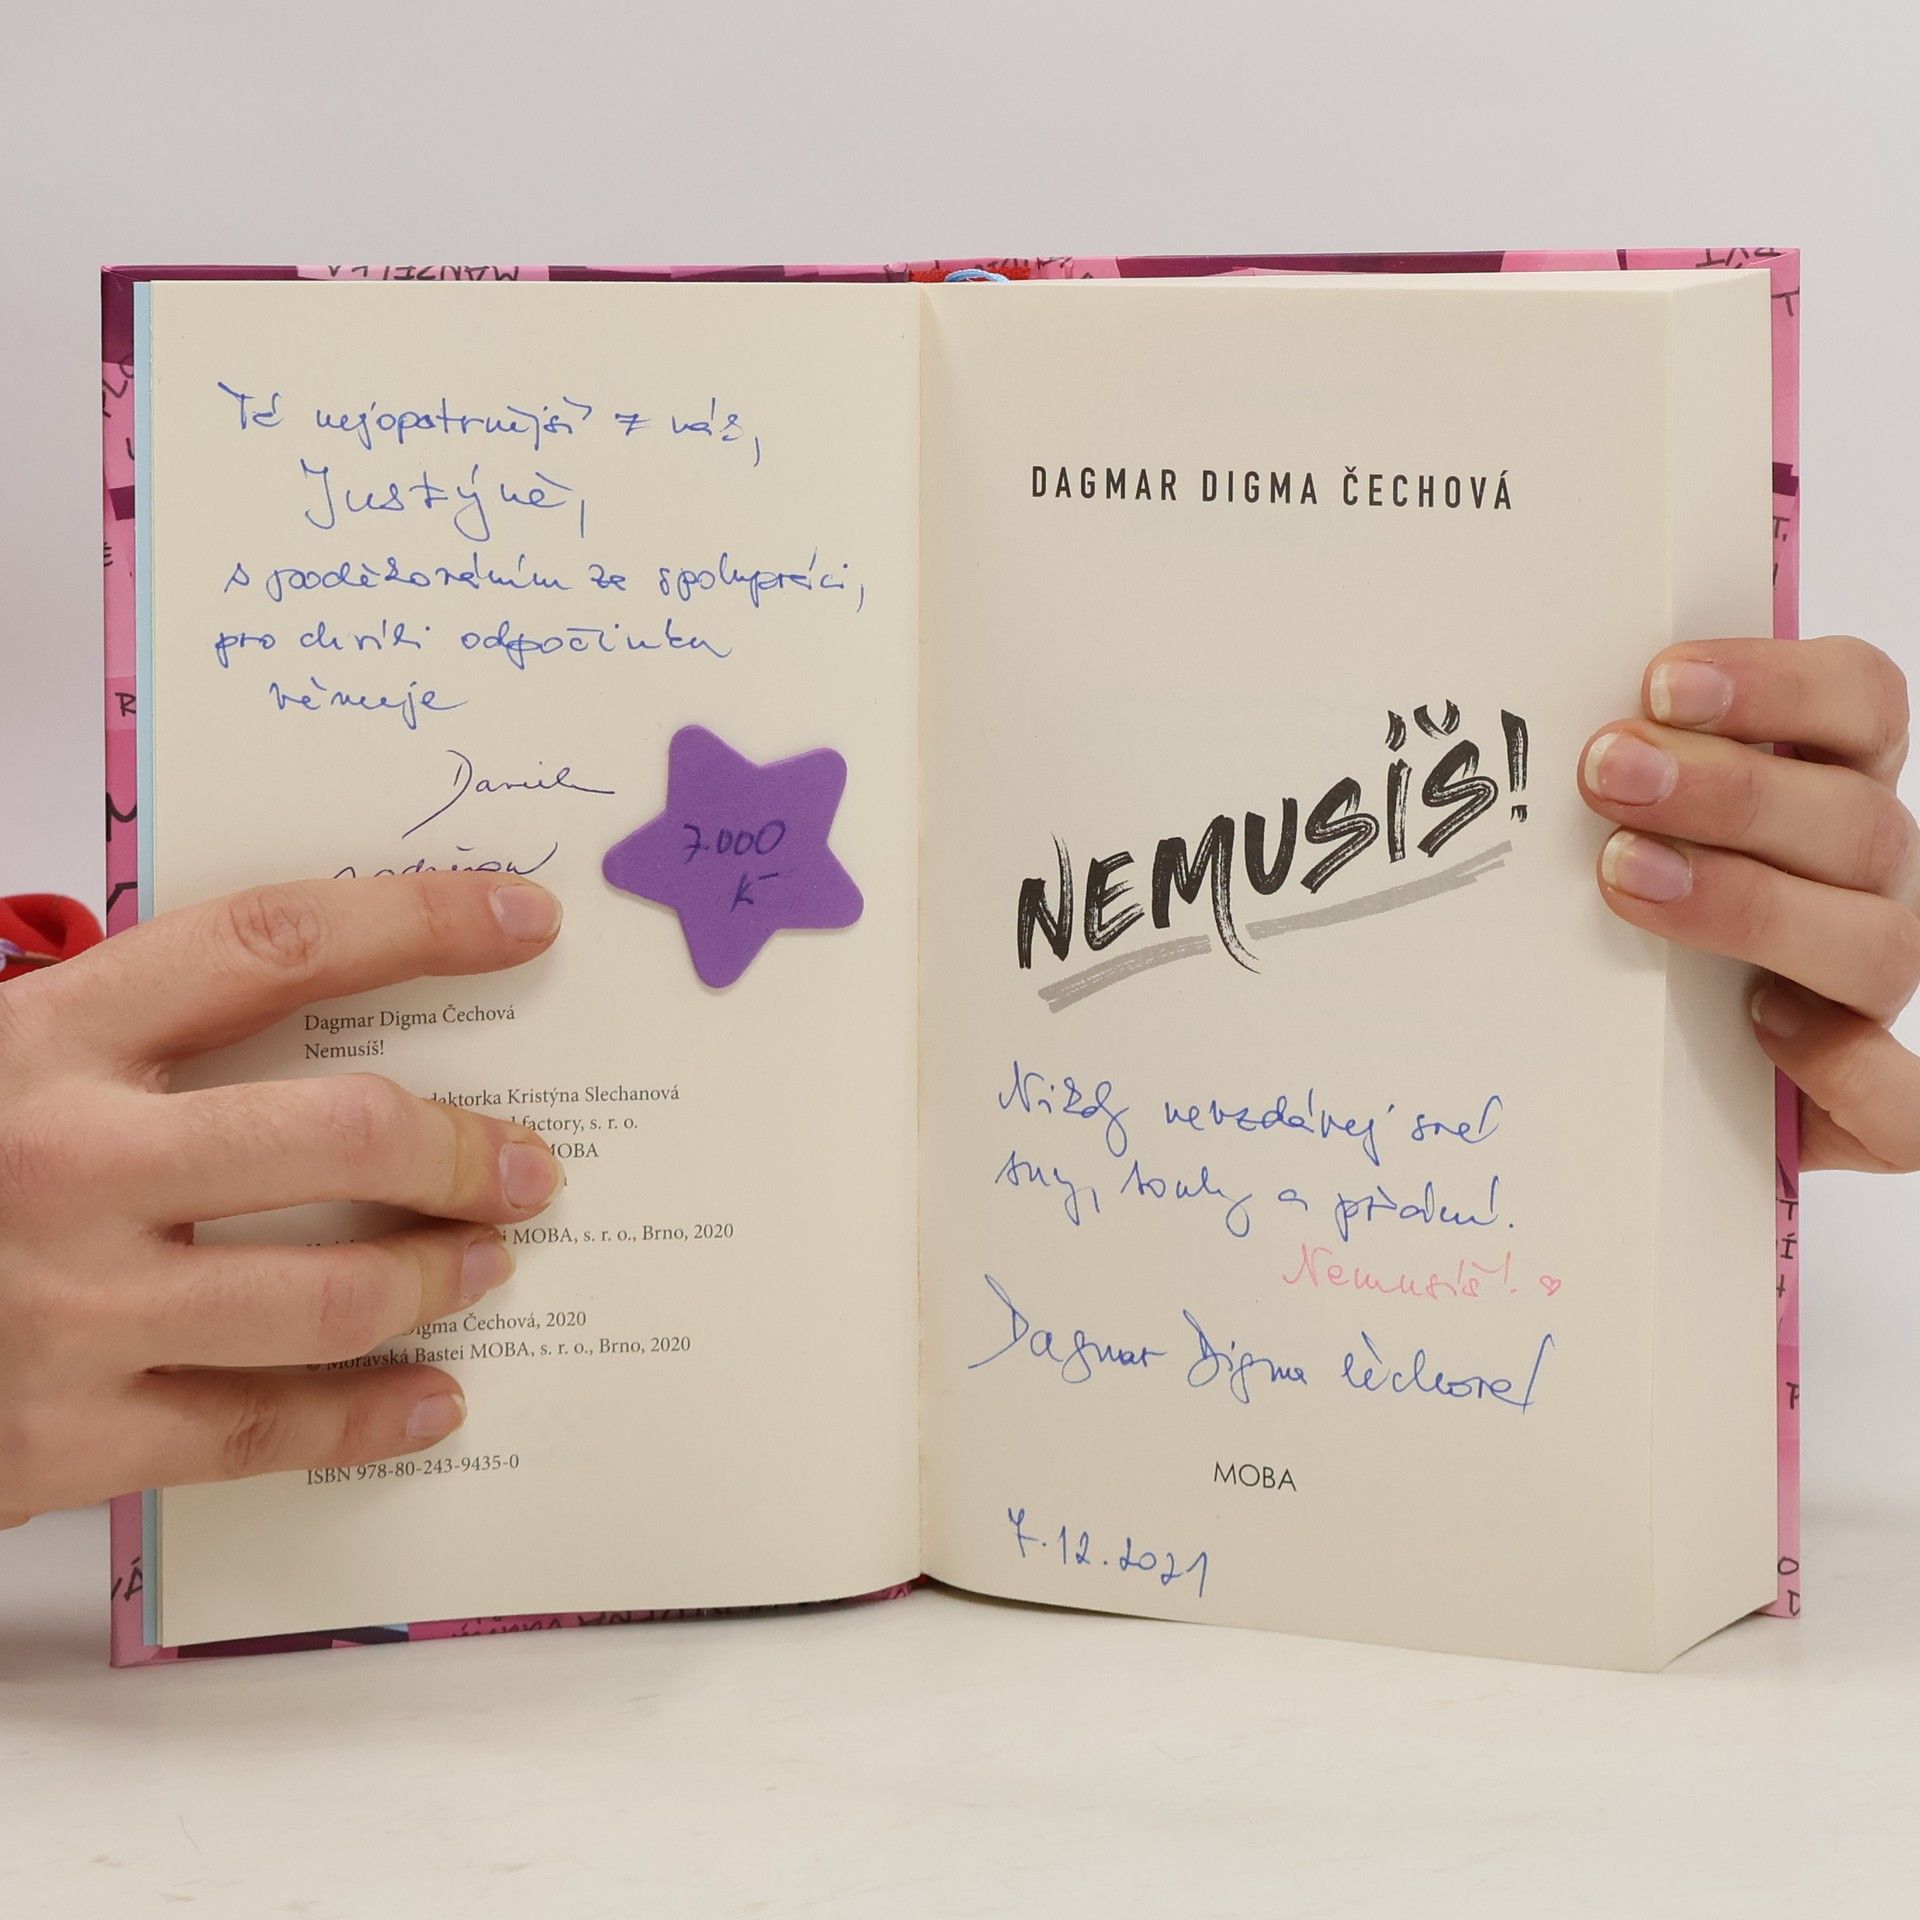 Té nejopatrnější z vás,
Justýně,
s poděkováním za spolupráci,
pro chvíli odpočinku
věnuje
7.000
K
Dagmar Digma Čechová
Nemusíš!
Kristýna Slechanová
factory, s. r. o.
MOBA
MOBA, s. r. o., Brno, 2020
Čechová, 2020
© Moravská Bastei MOBA, s. r. o., Brno, 2020
ISBN 978-80-243-9435-0
DAGMAR DIGMA ČECHOVÁ
NEMUSÍŠ!
Nikdy nevzdávej své
sny, touhy a přání.
Nemusíš!
Dagmar Digma Čechová
MOBA
7.12.2021